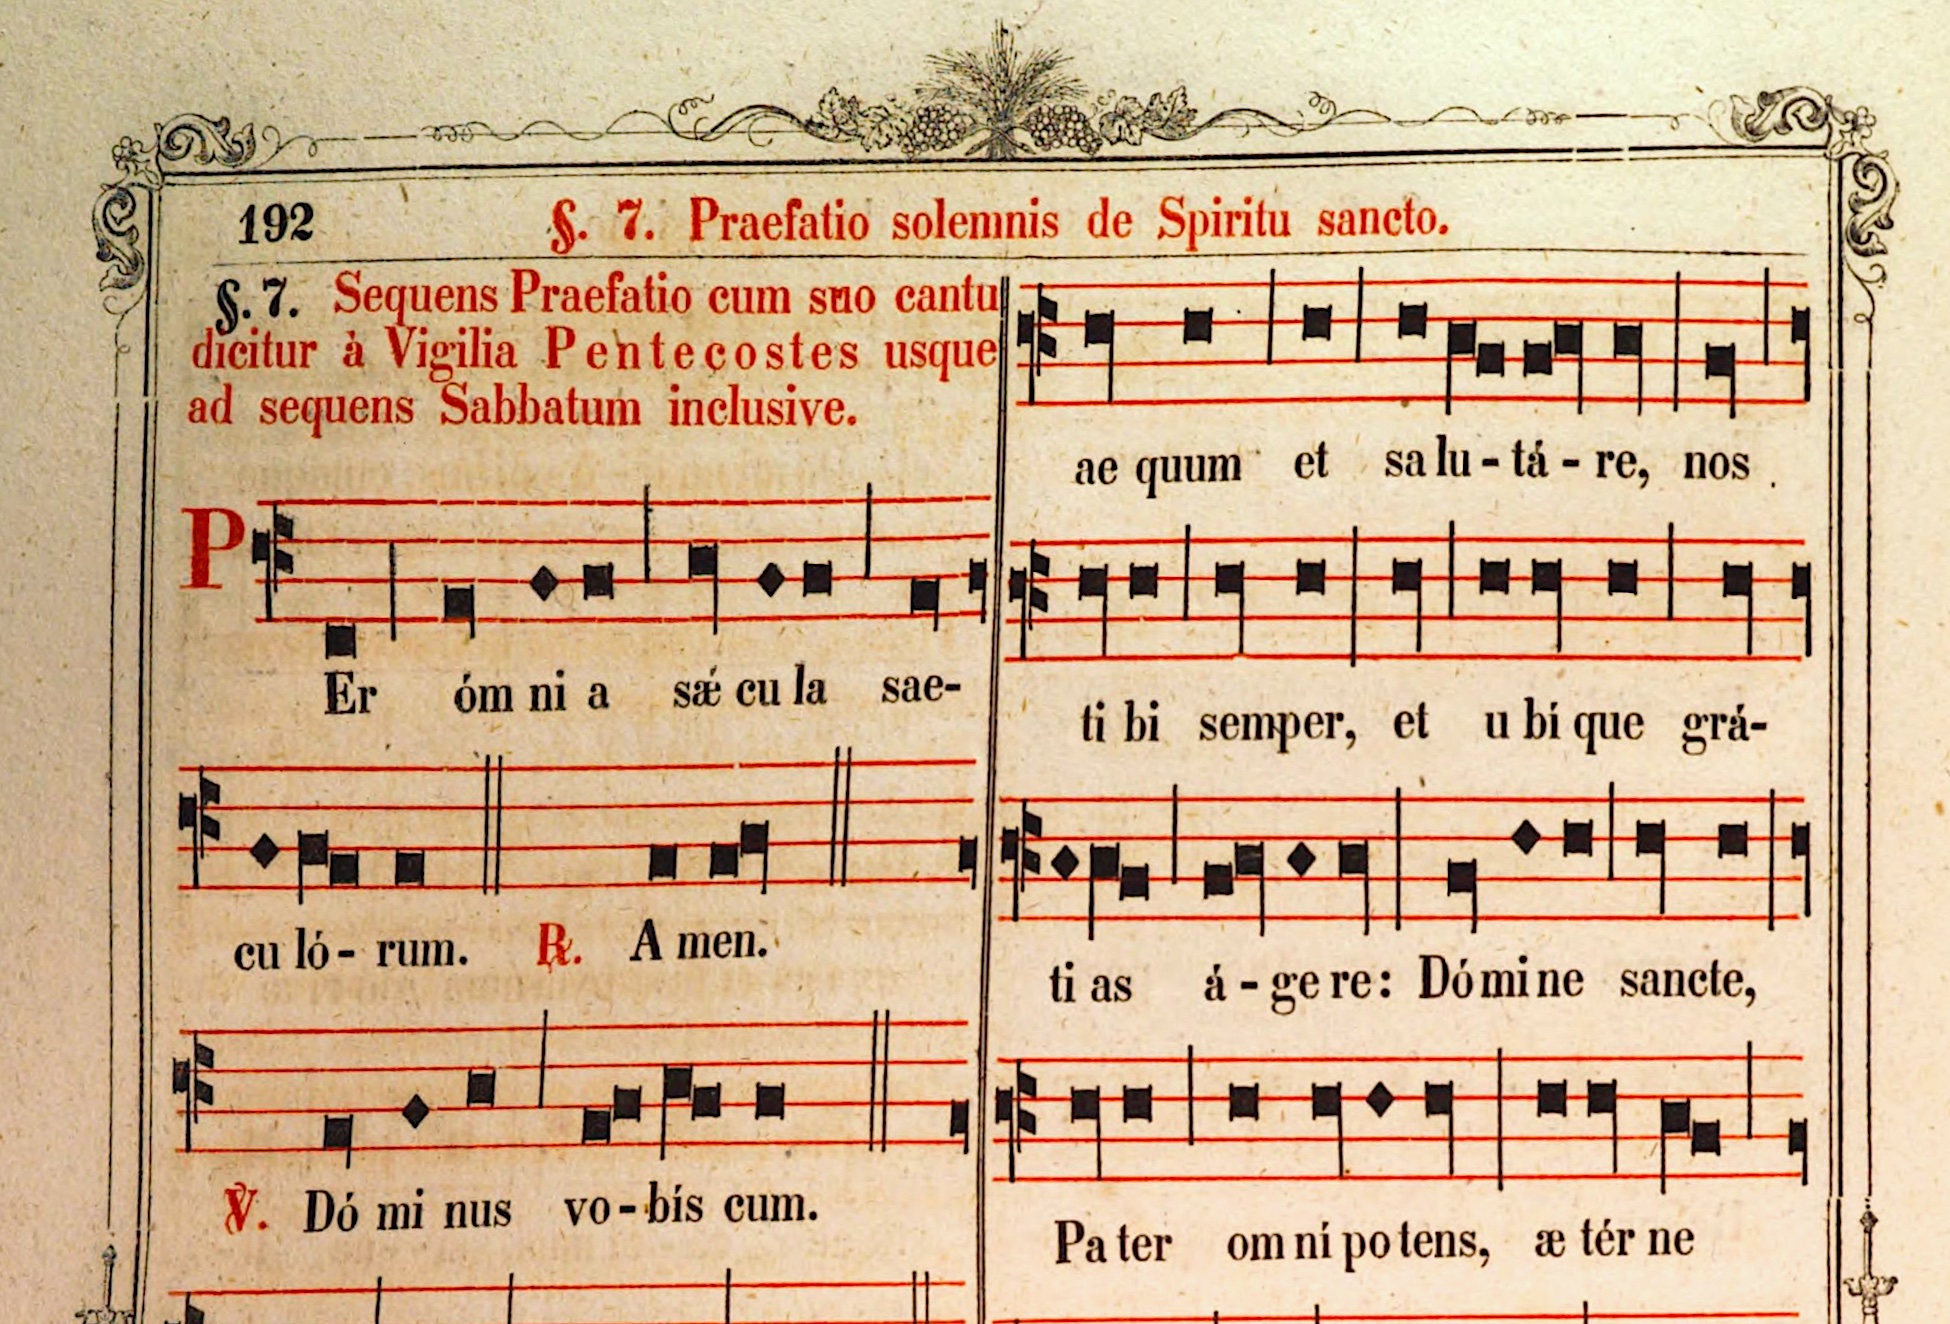 192 §. 7. Praefatio solemnis de Spiritu sancto.
§. 7. Sequens Praefatio cum suo cantu
dicitur à Vigilia Pentecostes usque
ad sequens Sabbatum inclusive.
P
Er óm ni a sǽ cu la sae-
cu ló- rum. ℟. A men.
℣. Dó mi nus vo-bís cum.
ae quum et sa lu-tá-re, nos
ti bi semper, et u bí que grá-
ti as á-ge re: Dómine sancte,
Pa ter om ní po tens, æ tér ne